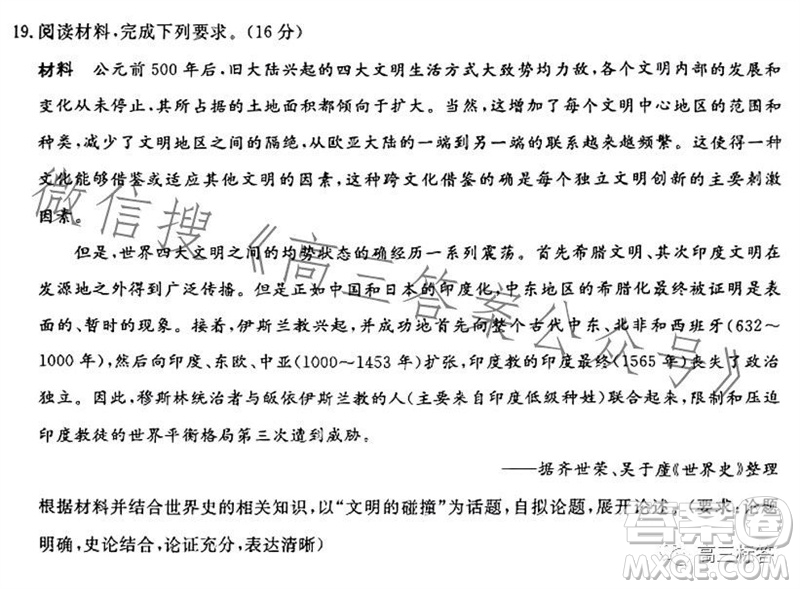 19.阅读材料,完成下列要求。(16分)
材料 公元前500年后,旧大陆兴起的四大文明生活方式大致势均力敌,各个文明内部的发展和
变化从未停止,其所占据的土地面积都倾向于扩大。当然,这增加了每个文明中心地区的范围和
种类,减少了文明地区之间的隔绝,从欧亚大陆的一端到另一端的联系越来越频繁。这使得一种
文化能够借鉴或适应其他文明的因素,这种跨文化借鉴的确是每个独立文明创新的主要刺激
因素。
但是,世界四大文明之间的均势状态的确经历一系列震荡。首先希腊文明、其次印度文明在
发源地之外得到广泛传播。但是正如中国和日本的印度化,中东地区的希腊化最终被证明是表
面的、暂时的现象。接着,伊斯兰教兴起,并成功地首先向整个古代中东、北非和西班牙(632~
1000年),然后向印度、东欧、中亚(1000~1453年)扩张,印度教的印度最终(1565年)丧失了政治
独立。因此,穆斯林统治者与皈依伊斯兰教的人(主要来自印度低级种姓)联合起来,限制和压迫
印度教徒的世界平衡格局第三次遭到威胁。
——据齐世荣、吴于廑《世界史》整理
根据材料并结合世界史的相关知识,以“文明的碰撞”为话题,自拟论题,展开论述。(要求:论题
明确,史论结合,论证充分,表达清晰)
微信搜《高三答案公众号》
答案圈
高三标答